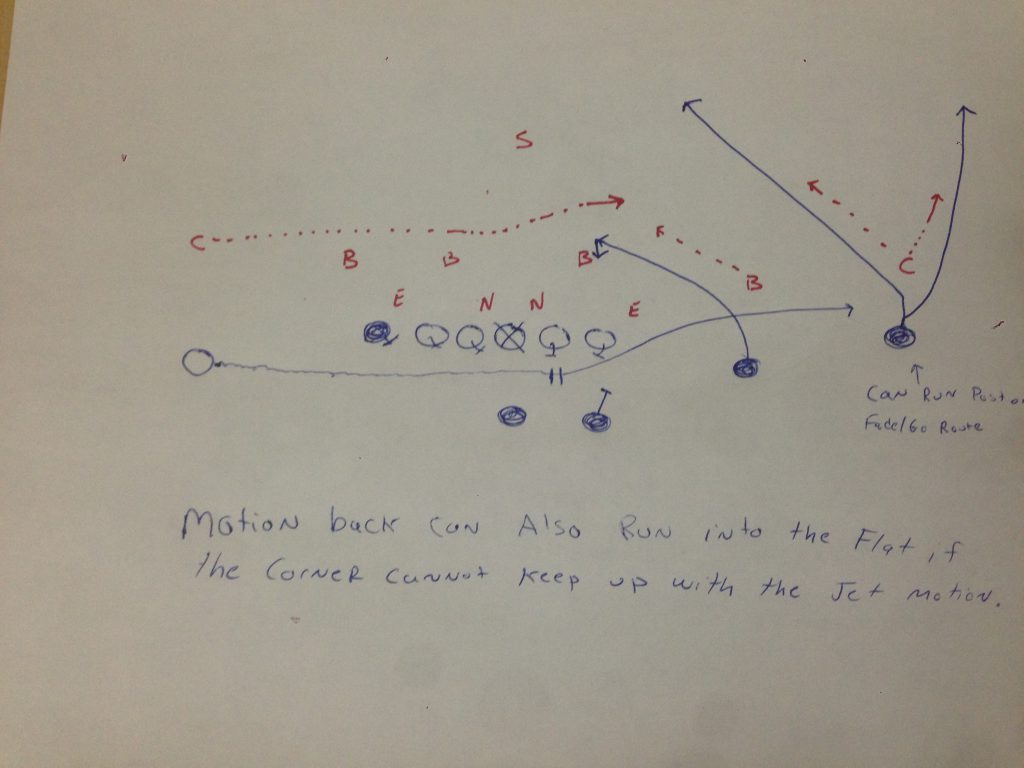 S
C
B B B
C
B
E N N E
Can Run Post or
Fade/Go Route
Motion back can Also Run into the Flat if
the Corner cannot keep up with the Jet motion.